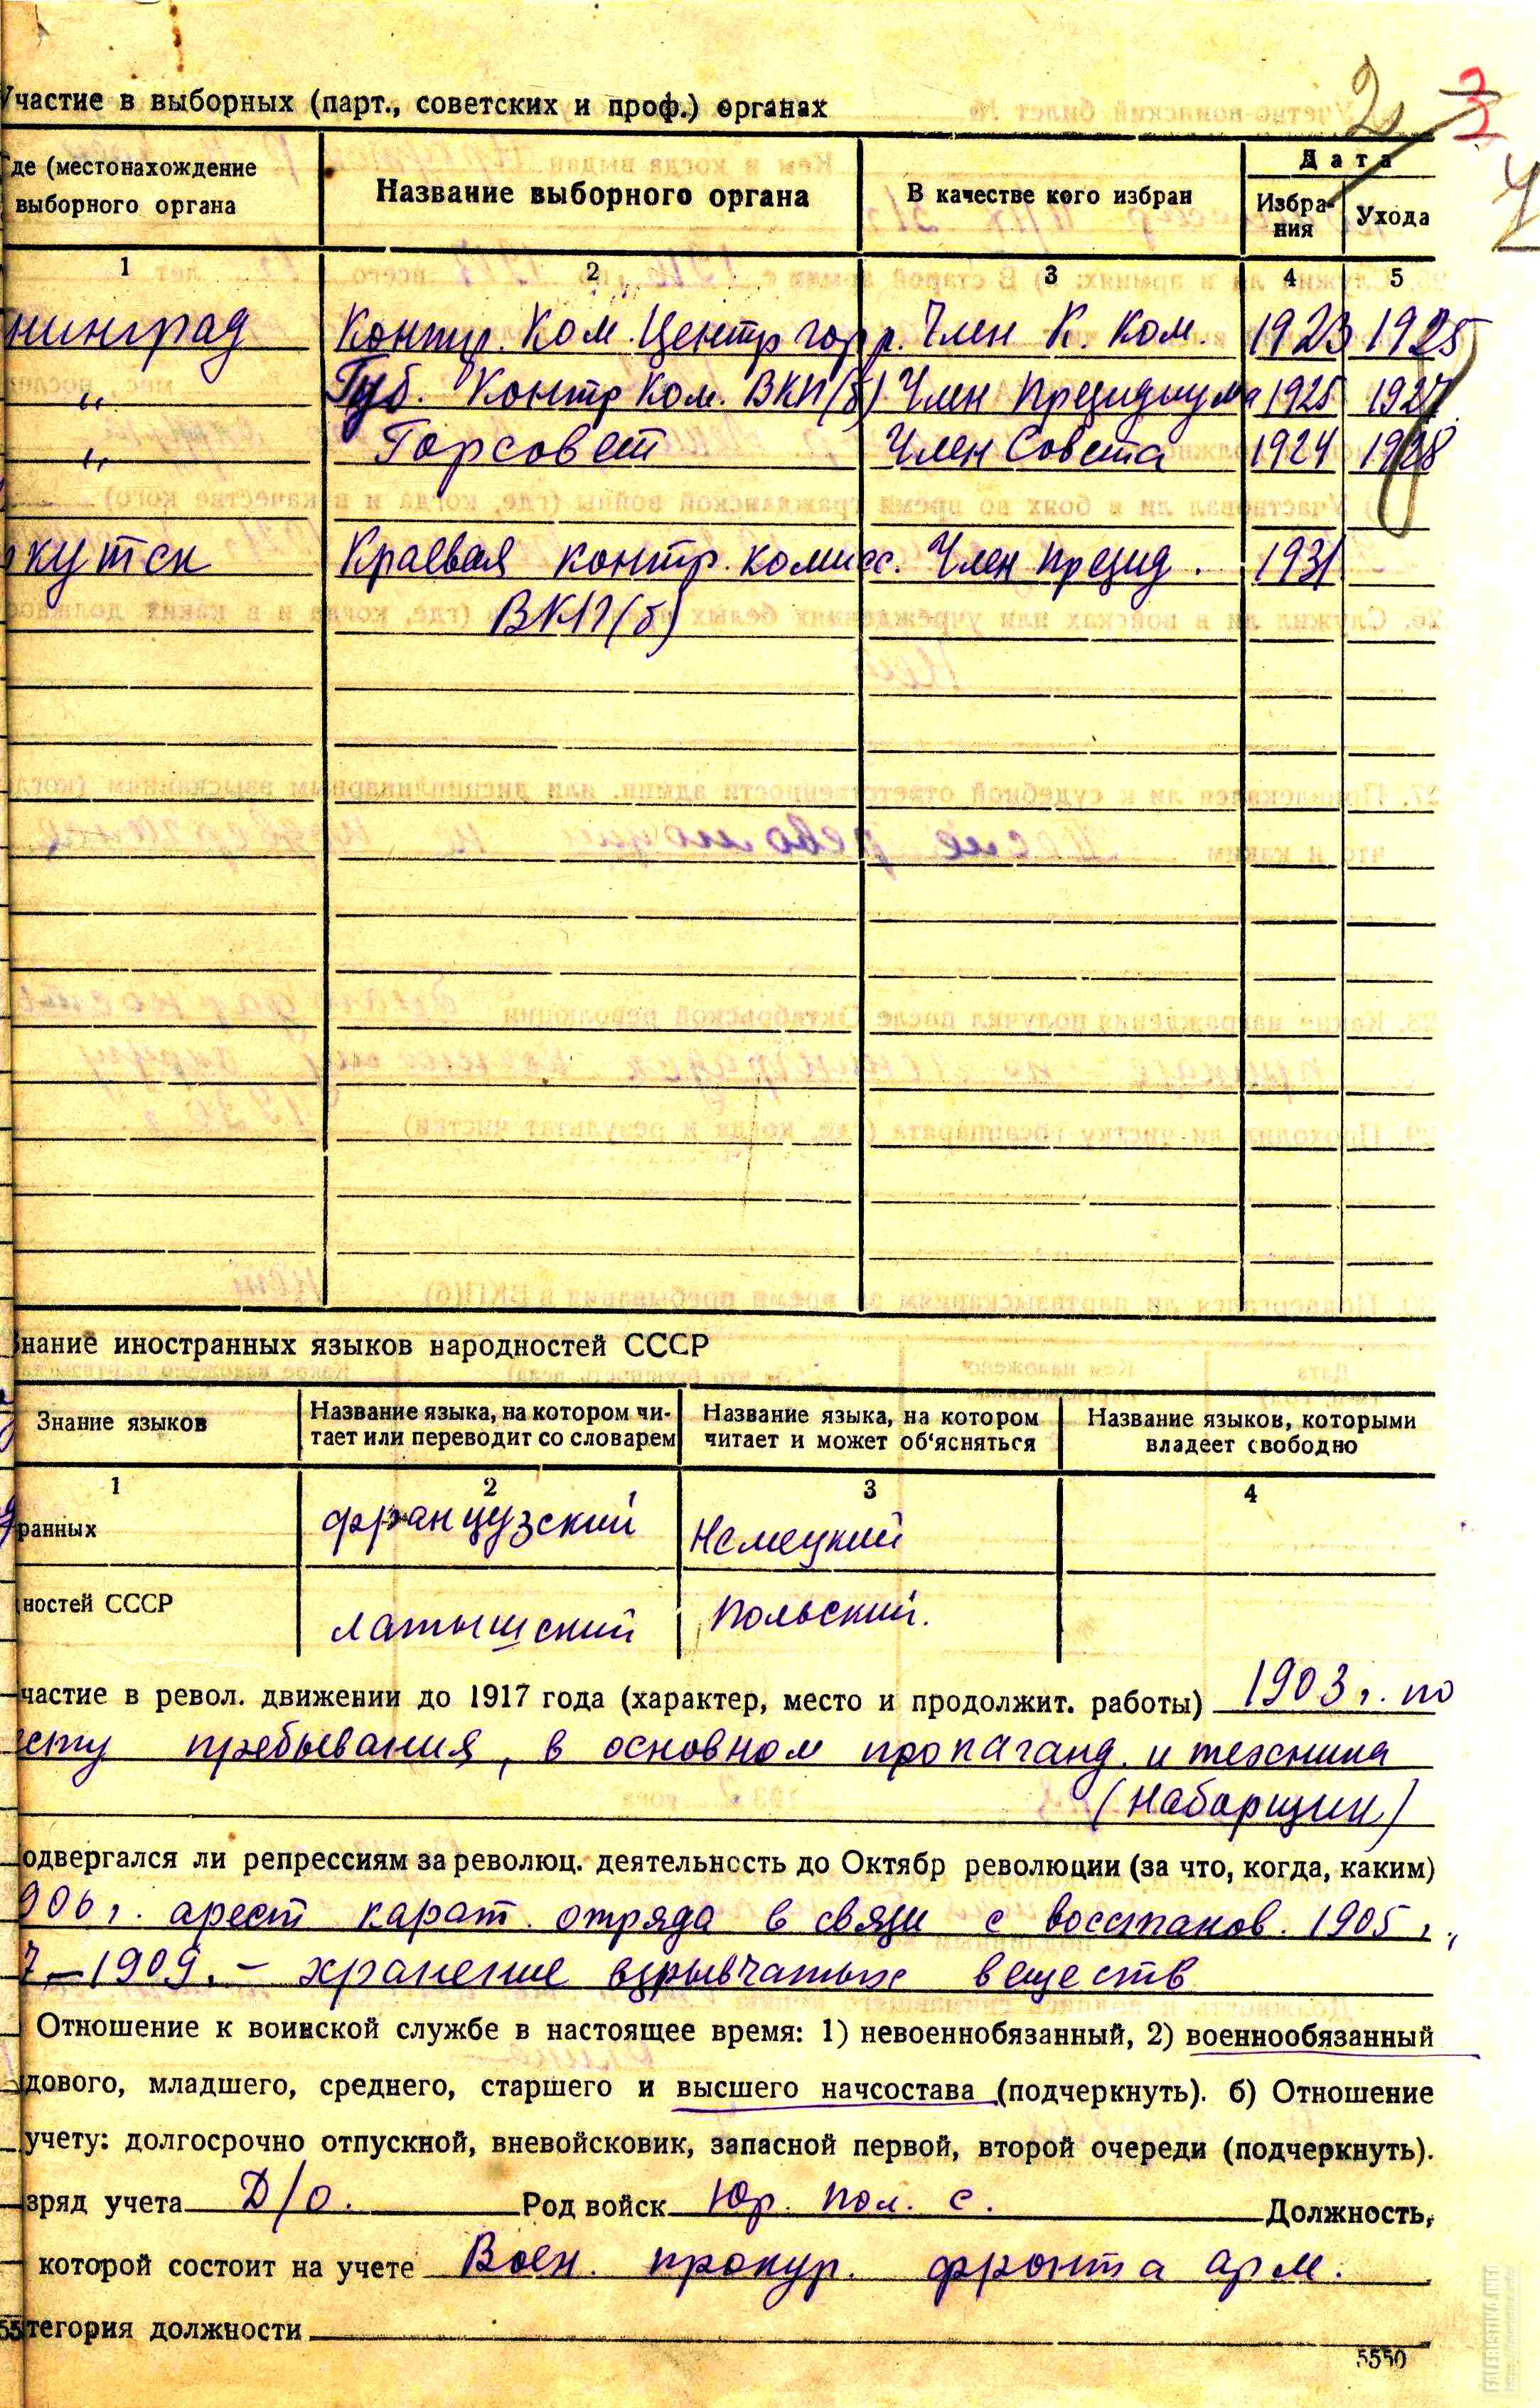 Участие в выборных (парт., советских и проф.) органах
2 3
4
Где (местонахождение выборного органа | Название выборного органа | В качестве кого избран | Дата
Избрания | Ухода
1 | 2 | 3 | 4 | 5
нинград | Контр. Ком. Центр гор р. | Член К. Ком. | 1923 | 1925
" | Губ. Контр Ком. ВКП(б) | Член Президиума | 1925 | 1927
" | Горсовет | Член Совета | 1924 | 1928
ркутск | Краевая контр. комисс. | Член презид. | 1931 | -
ВКП(б)
Знание иностранных языков народностей СССР
Знание языков | Название языка, на котором чи-тает или переводит со словарем | Название языка, на котором читает и может об'ясняться | Название языков, которыми владеет свободно
1 | 2 | 3 | 4
ранных | французский | Немецкий
ностей СССР | латышский | Польский.
частие в револ. движении до 1917 года (характер, место и продолжит. работы) 1903 г. по
есту пребывания, в основном пропаганд. и техника
(наборщик)
одвергался ли репрессиям за революц. деятельность до Октябр революции (за что, когда, каким)
906 г. арест карат. отряда в связи с восстанов. 1905 г.,
7–1909. – хранение взрывчатых веществ
Отношение к воинской службе в настоящее время: 1) невоеннобязанный, 2) военнообязанный
дового, младшего, среднего, старшего и высшего начсостава (подчеркнуть). б) Отношение
учету: долгосрочно отпускной, вневойсковик, запасной первой, второй очереди (подчеркнуть).
зряд учета Д/о. Род войск Юр. пол. с. Должность,
которой состоит на учете Воен. прокур. фронта арм.
тегория должности
5550
FALERISTIKA.INFO